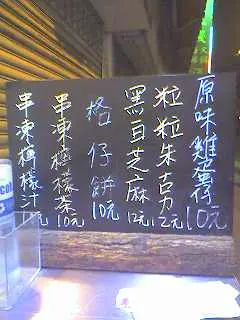 原味雞蛋仔 10元
粒粒朱古力 12元
黑白芝麻 12元
格仔餅 10元
串凍檸檬茶 10元
串凍檸檬汁 元